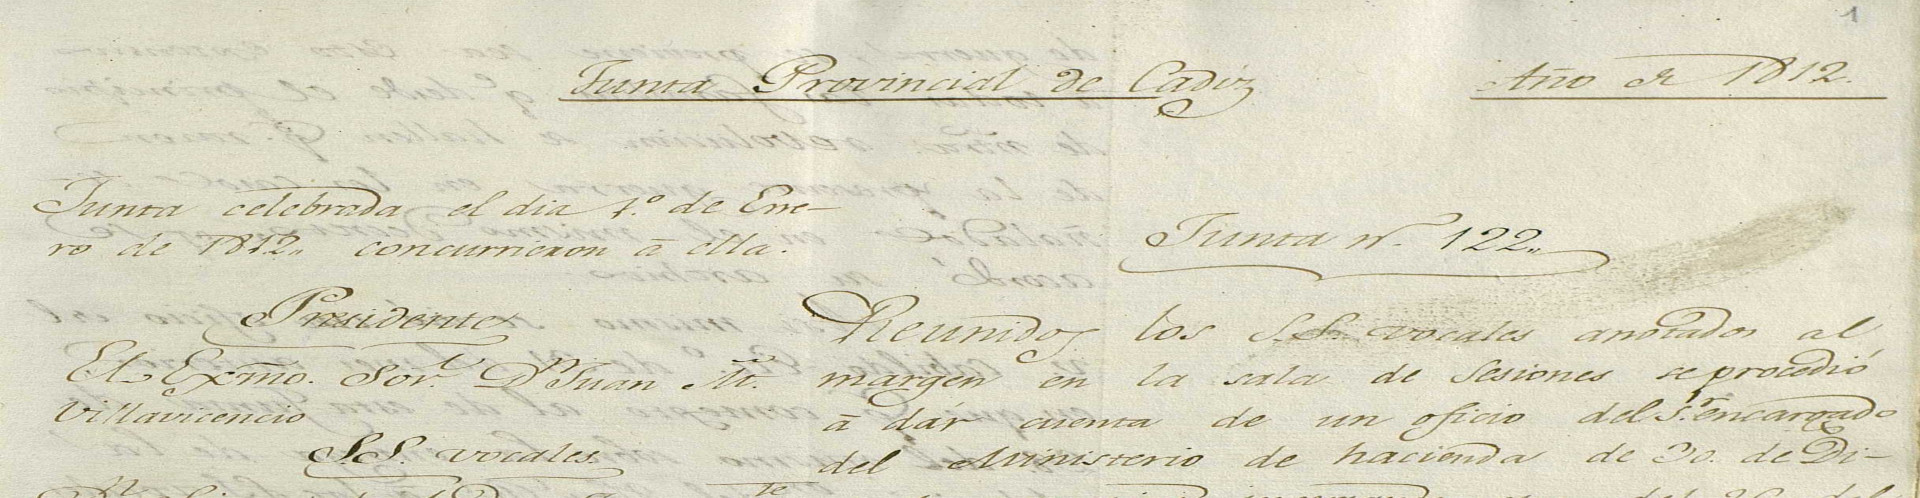 1
Junta Provincial de Cadiz
Año de 1812.
Junta celebrada el dia 1.º de Ene-
ro de 1812,, concurrieron à ella.
Presidente
El Exmo. Sor. Dn Juan Mª.
Villavicencio
S.S. vocales.
Junta nº. 122,,
Reunidos los S.S. vocales anotados al
margen en la sala de Sesiones se procedió
à dár cuenta de un oficio del Sr. encargado
del Ministerio de hacienda de 30. de Di-